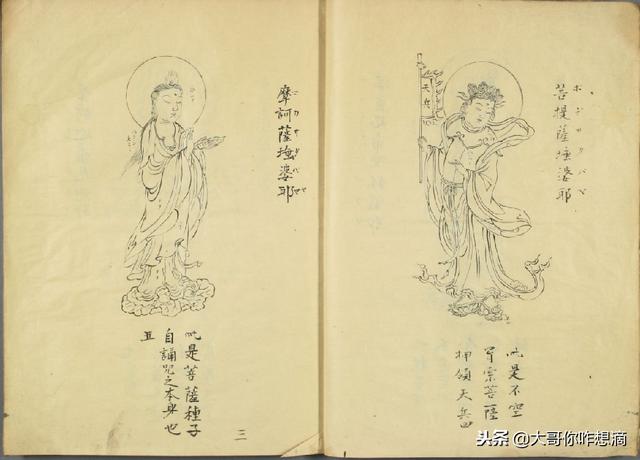 菩提薩埵婆耶
天兵
此是不空
羂索菩薩
押領天兵四
摩訶薩埵婆耶
此是菩薩種子
自誦呪之本身也
五
三
头条 @大哥你咋想滴